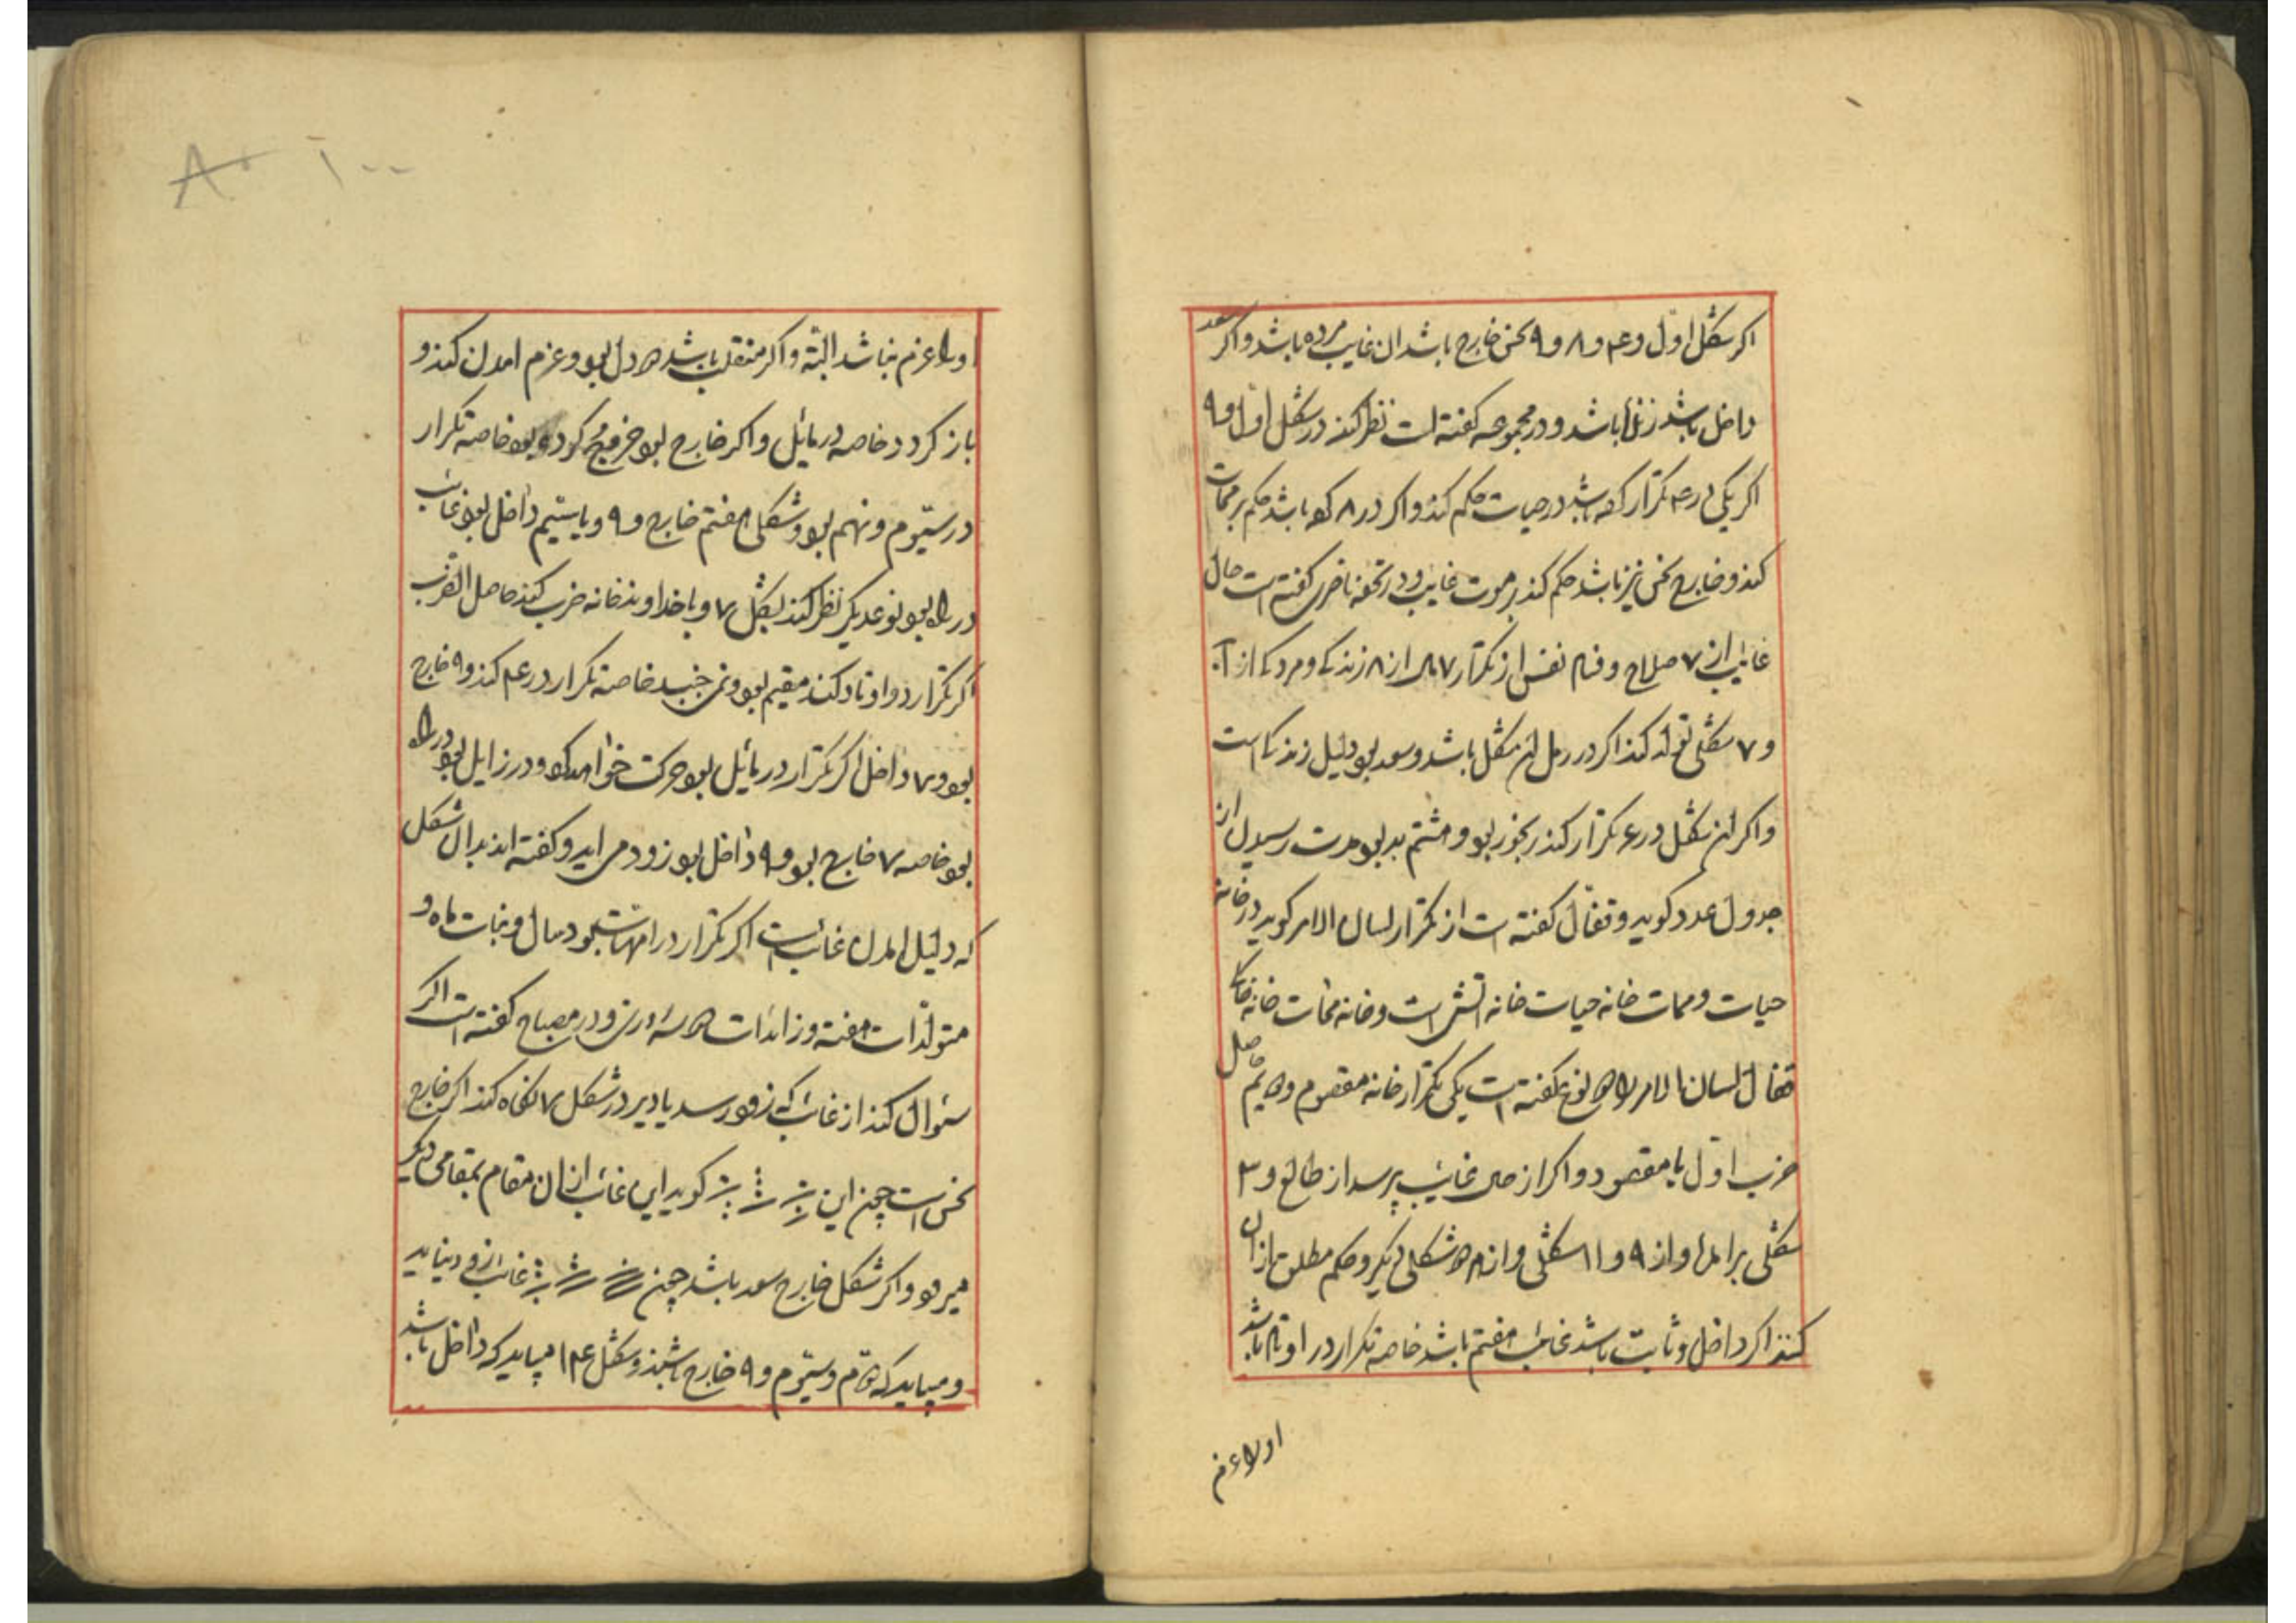 اکر شکل اول و ۴ و ۸ و ۹ نحس خارج باشد ان غایب مرده باشد و اکر سعد
داخل باشد زنده باشد و در مجموعه کفته است نظر کند در شکل اول و ۹
اکر یکی در ۴ تکرار کرده باشد در حیات حکم کند و اکر در ۸ کرده باشد حکم بر ممات
کند و خارج نحس نیز باشد حکم کند بر موت غایب و در تحفه ناصری کفته است حال
غایب از ۷ صلاح و فساد نفس از تکرار ۷ از ۸ زندکی و مردکی از
و ۷ شکلی تولد کند اکر در رمل ان شکل باشد و سعد بود دلیل زندکی است
و اکر ان شکل در ۶ تکرار کند رنجور بود و هشتم بد بود مدت رسیدن از
جدول عدد کوید و قفال کفته است از تکرار لسان الامر کوید در خانه
حیات و ممات خانه حیات خانه اتش است و خانه ممات خانه خاک
قفال لسان الامر نوع کفته است یکی تکرار خانه مقصوم حاصل
ضرب اول با مقصود و اکر از حی غایب پرسد از طالع و ۳
شکلی بر امد و از ۹ و ۱۱ شکلی و از شکلی دیکر و حکم مطلق از ان
کنند اکر داخل و ثابت باشد غایب مقیم باشد خاصه تکرار در اوتاد باشد
اولا عزم
اولا عزم نباشد البته و اکر منقلب باشد دو دل بود و عزم امدن کند و
باز کردد خاصه در مائل و اکر خارج بود خروج کرده بود خاصه تکرار
در سیوم و نهم بود و شکل هفتم خارج و ۹ و یا سیم داخل بود غائب
در راه بود نوع دیکر نظر کند بشکل ۷ و با خداوند خانه ضرب کند حاصل الضرب
اکر تکرار در اوتاد کند مقیم بود و نمی جنبد خاصه تکرار در ۴ کند و ۹ خارج
بود و ۷ داخل اکر تکرار در مائل بود حرکت خواهد کرد و در زایل بود در راه
بود خاصه ۷ خارج بود و ۹ داخل بود زود می اید و کفته اند بدان شکل
که دلیل امدن غائب است اکر تکرار در امهات بود سال و بنات ماه و
متولدات هفته و زائدات روز و در مصباح کفته است اکر
سئوال کند از غائب که زود رسد یا دیر در شکل ۷ نکاه کند اکر خارج
نحس است چون این کوید این غائب از ان مقام بمقامی دیکر
میرود و اکر شکل خارج سعد باشد چون غائب زود بیاید
و میباید که دوم و سیوم و ۹ خارج باشند و شکل ۱۴ میباید که داخل باشد